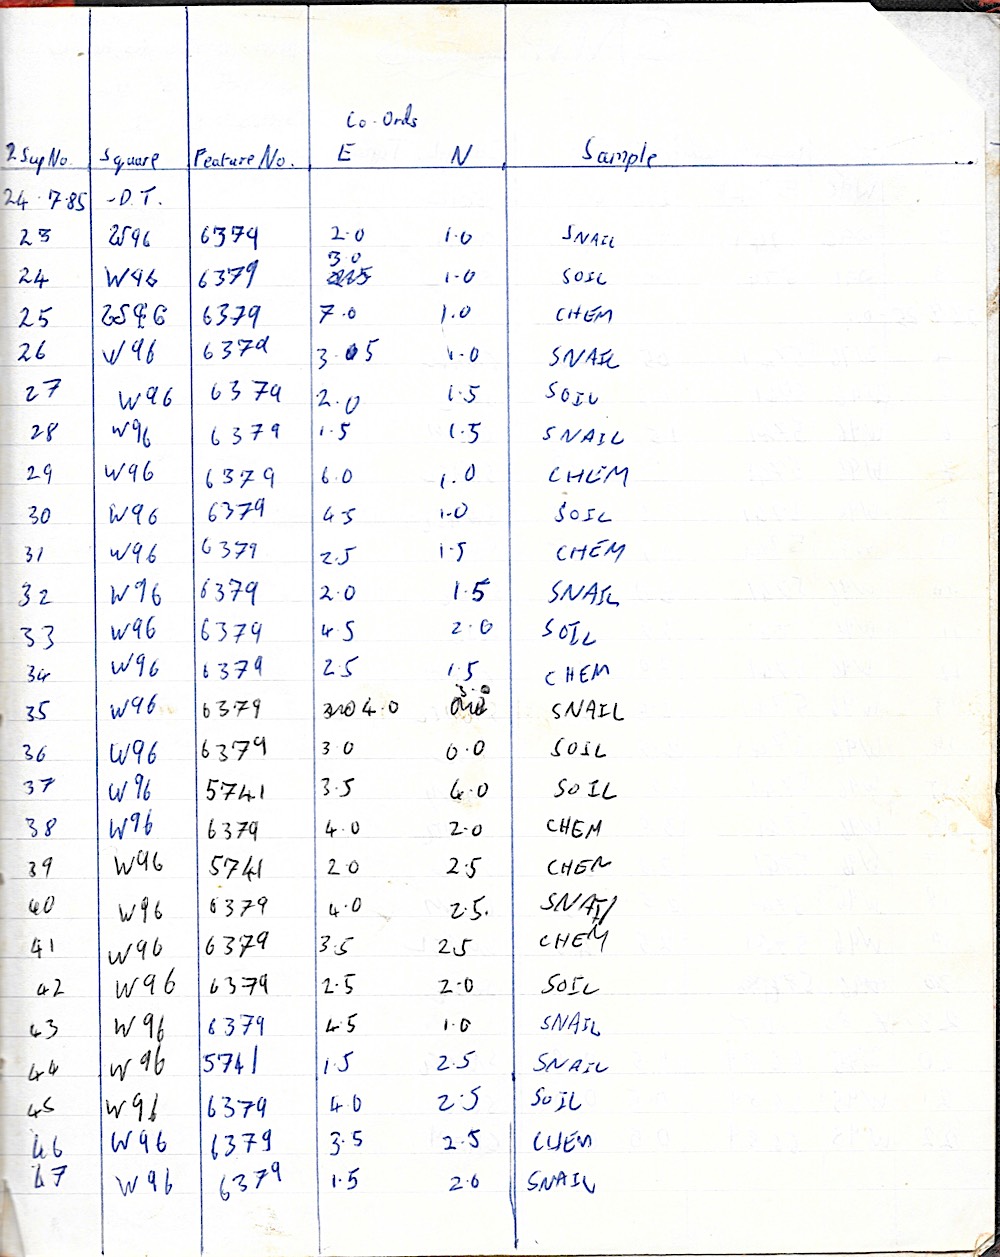 Co-Ords
2 Sup No. Square Feature No. E N Sample
24.7.85 -D.T.
23 2S96 6379 2.0 1.0 SNAIL
3.0
24 W96 6379 1.0 SOIL
25 2S96 6379 7.0 1.0 CHEM
26 W96 6379 3.05 1.0 SNAIL
27 W96 6379 2.0 1.5 SOIL
28 W96 6379 1.5 1.5 SNAIL
29 W96 6379 6.0 1.0 CHEM
30 W96 6379 4.5 1.0 SOIL
31 W96 6379 2.5 1.5 CHEM
32 W96 6379 2.0 1.5 SNAIL
33 W96 6379 4.5 2.0 SOIL
34 W96 6379 2.5 1.5 CHEM
3.0
35 W96 6379 4.0 SNAIL
36 W96 6379 3.0 0.0 SOIL
37 W96 5741 3.5 4.0 SOIL
38 W96 6379 4.0 2.0 CHEM
39 W96 5741 2.0 2.5 CHEM
40 W96 6379 4.0 2.5. SNAIL
41 W96 6379 3.5 2.5 CHEM
42 W96 6379 2.5 2.0 SOIL
43 W96 6379 4.5 1.0 SNAIL
44 W96 5741 1.5 2.5 SNAIL
45 W96 6379 4.0 2.5 SOIL
46 W96 6379 3.5 2.5 CHEM
47 W96 6379 1.5 2.0 SNAIL